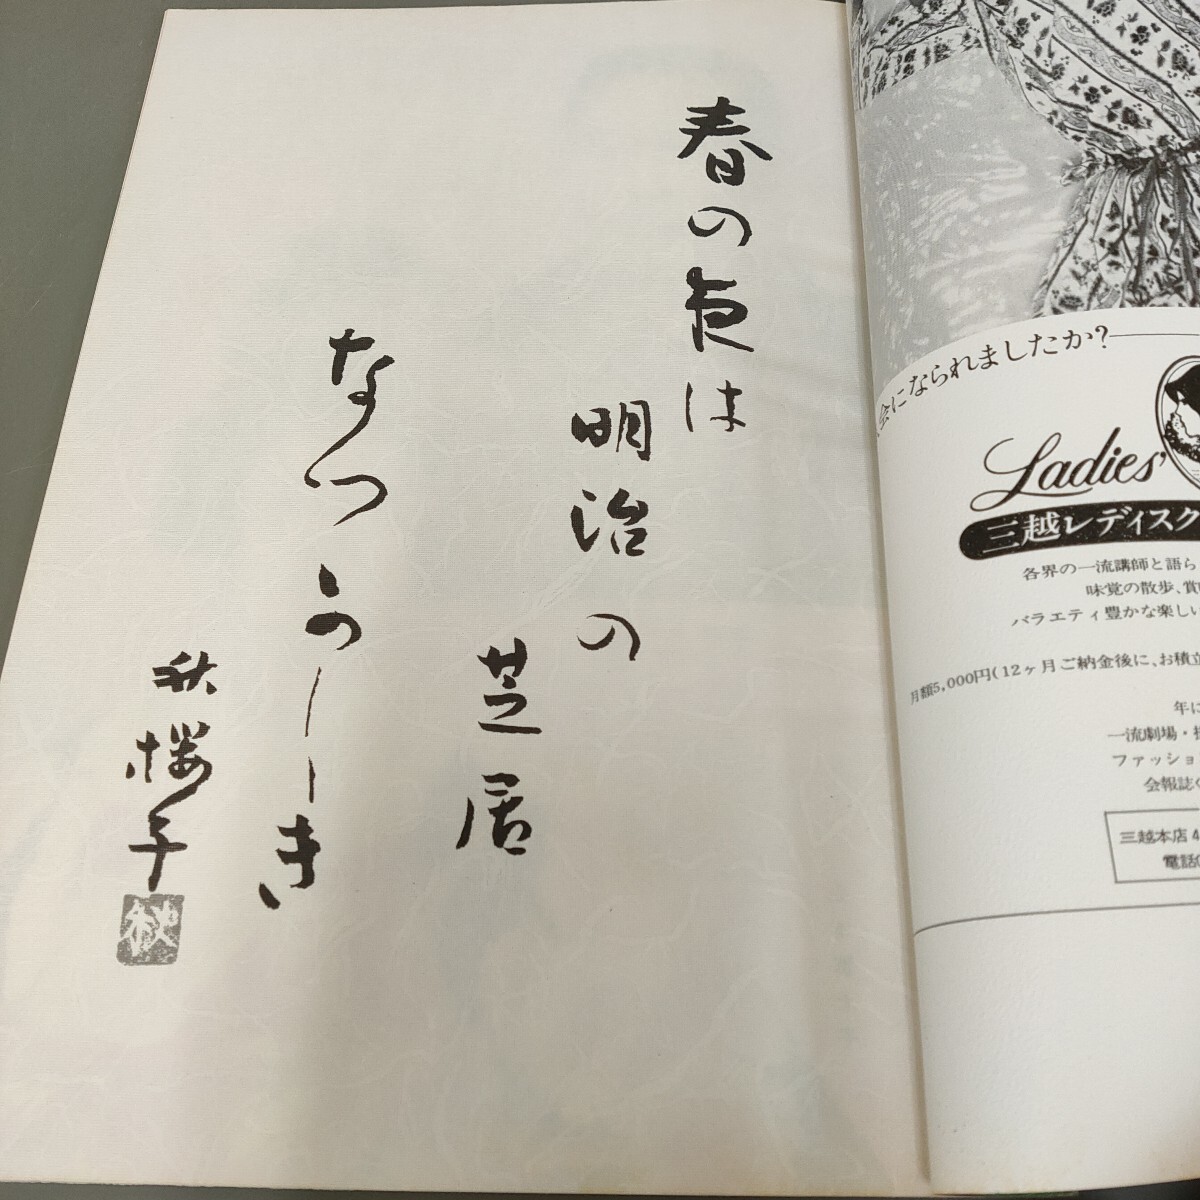 春の夜は
明治の
芝居
なつかしき
秋櫻子
秋
会になられましたか?
Ladies'
三越レディスク
各界の一流講師と語ら
味覚の散歩、賞
バラエティ豊かな楽しい
月額5,000円(12ヶ月ご納金後に、お積立
年に
一流劇場・
ファッショ
会報誌
三越本店4
電話